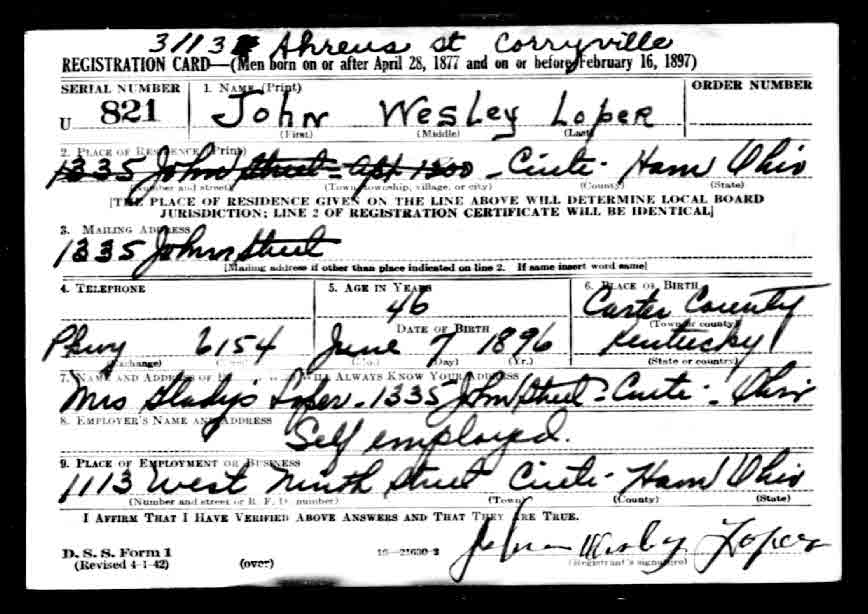 3113 Ahrens st Corryville
REGISTRATION CARD—(Men born on or after April 28, 1877 and on or before February 16, 1897)
SERIAL NUMBER 1. NAME (Print) ORDER NUMBER
U 821 John Wesley Loper
(First) (Middle) (Last)
2. PLACE OF RESIDENCE (Print)
1335 John Street - Apt 1300 - Cinti - Ham Ohio
(Number and street) (Town, township, village, or city) (County) (State)
[THE PLACE OF RESIDENCE GIVEN ON THE LINE ABOVE WILL DETERMINE LOCAL BOARD
JURISDICTION; LINE 2 OF REGISTRATION CERTIFICATE WILL BE IDENTICAL]
3. MAILING ADDRESS
1335 John Street
[Mailing address if other than place indicated on line 2. If same insert word same]
4. TELEPHONE 5. AGE IN YEARS 6. PLACE OF BIRTH
46 Carter County
DATE OF BIRTH (Town or county)
Pkwy 6154 June 7 1896 Kentucky
(Exchange) (Day) (Yr.) (State or country)
7. NAME AND ADDRESS OF WILL ALWAYS KNOW YOUR ADDRESS
Mrs Gladys Loper - 1335 John Street - Cinti - Ohio
8. EMPLOYER'S NAME AND ADDRESS
Self employed.
9. PLACE OF EMPLOYMENT OR BUSINESS
1113 West Ninth Street Cinti - Ham Ohio
(Number and street or R. F. D. number) (Town) (County) (State)
I AFFIRM THAT I HAVE VERIFIED ABOVE ANSWERS AND THAT THEY ARE TRUE.
John Wesley Loper
D. S. S. Form 1
(Revised 4-1-42) (over) 16—21630-2 (Registrant's signature)